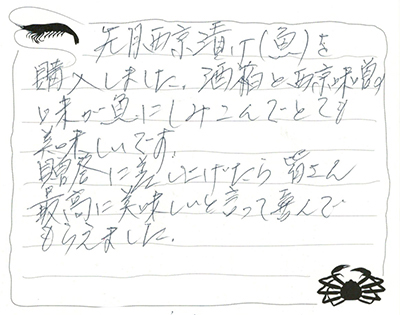 先月西京漬け(魚)を
購入しました。酒粕と西京味噌の
味が魚にしみこんでとても
美味しいです。
贈答に差し上げたら皆さん
最高に美味しいと言って喜んで
もらえました。